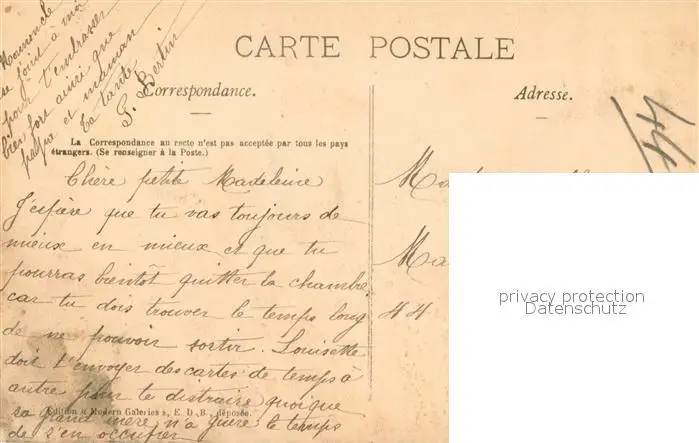 CARTE POSTALE
Correspondance.
Adresse.
La Correspondance au recto n'est pas acceptée par tous les pays
étrangers. (Se renseigner à la Poste.)
Chère petite Madeleine
J'espère que tu vas toujours de
mieux en mieux et que tu
pourras bientôt quitter la chambre,
car tu dois trouver le temps long
de ne pouvoir sortir. Louisette
doit t'envoyer des cartes de temps à
autre pour te distraire quoique
sa grand mère n'a guère le temps
de s'en occuper
se joint à moi
pour t'embrasser
bien fort ainsi que
papa et maman
Ta tante
G. Bertin
44
44
Edition « Modern Galeries », E. D. B., déposée.
privacy protection
Datenschutz